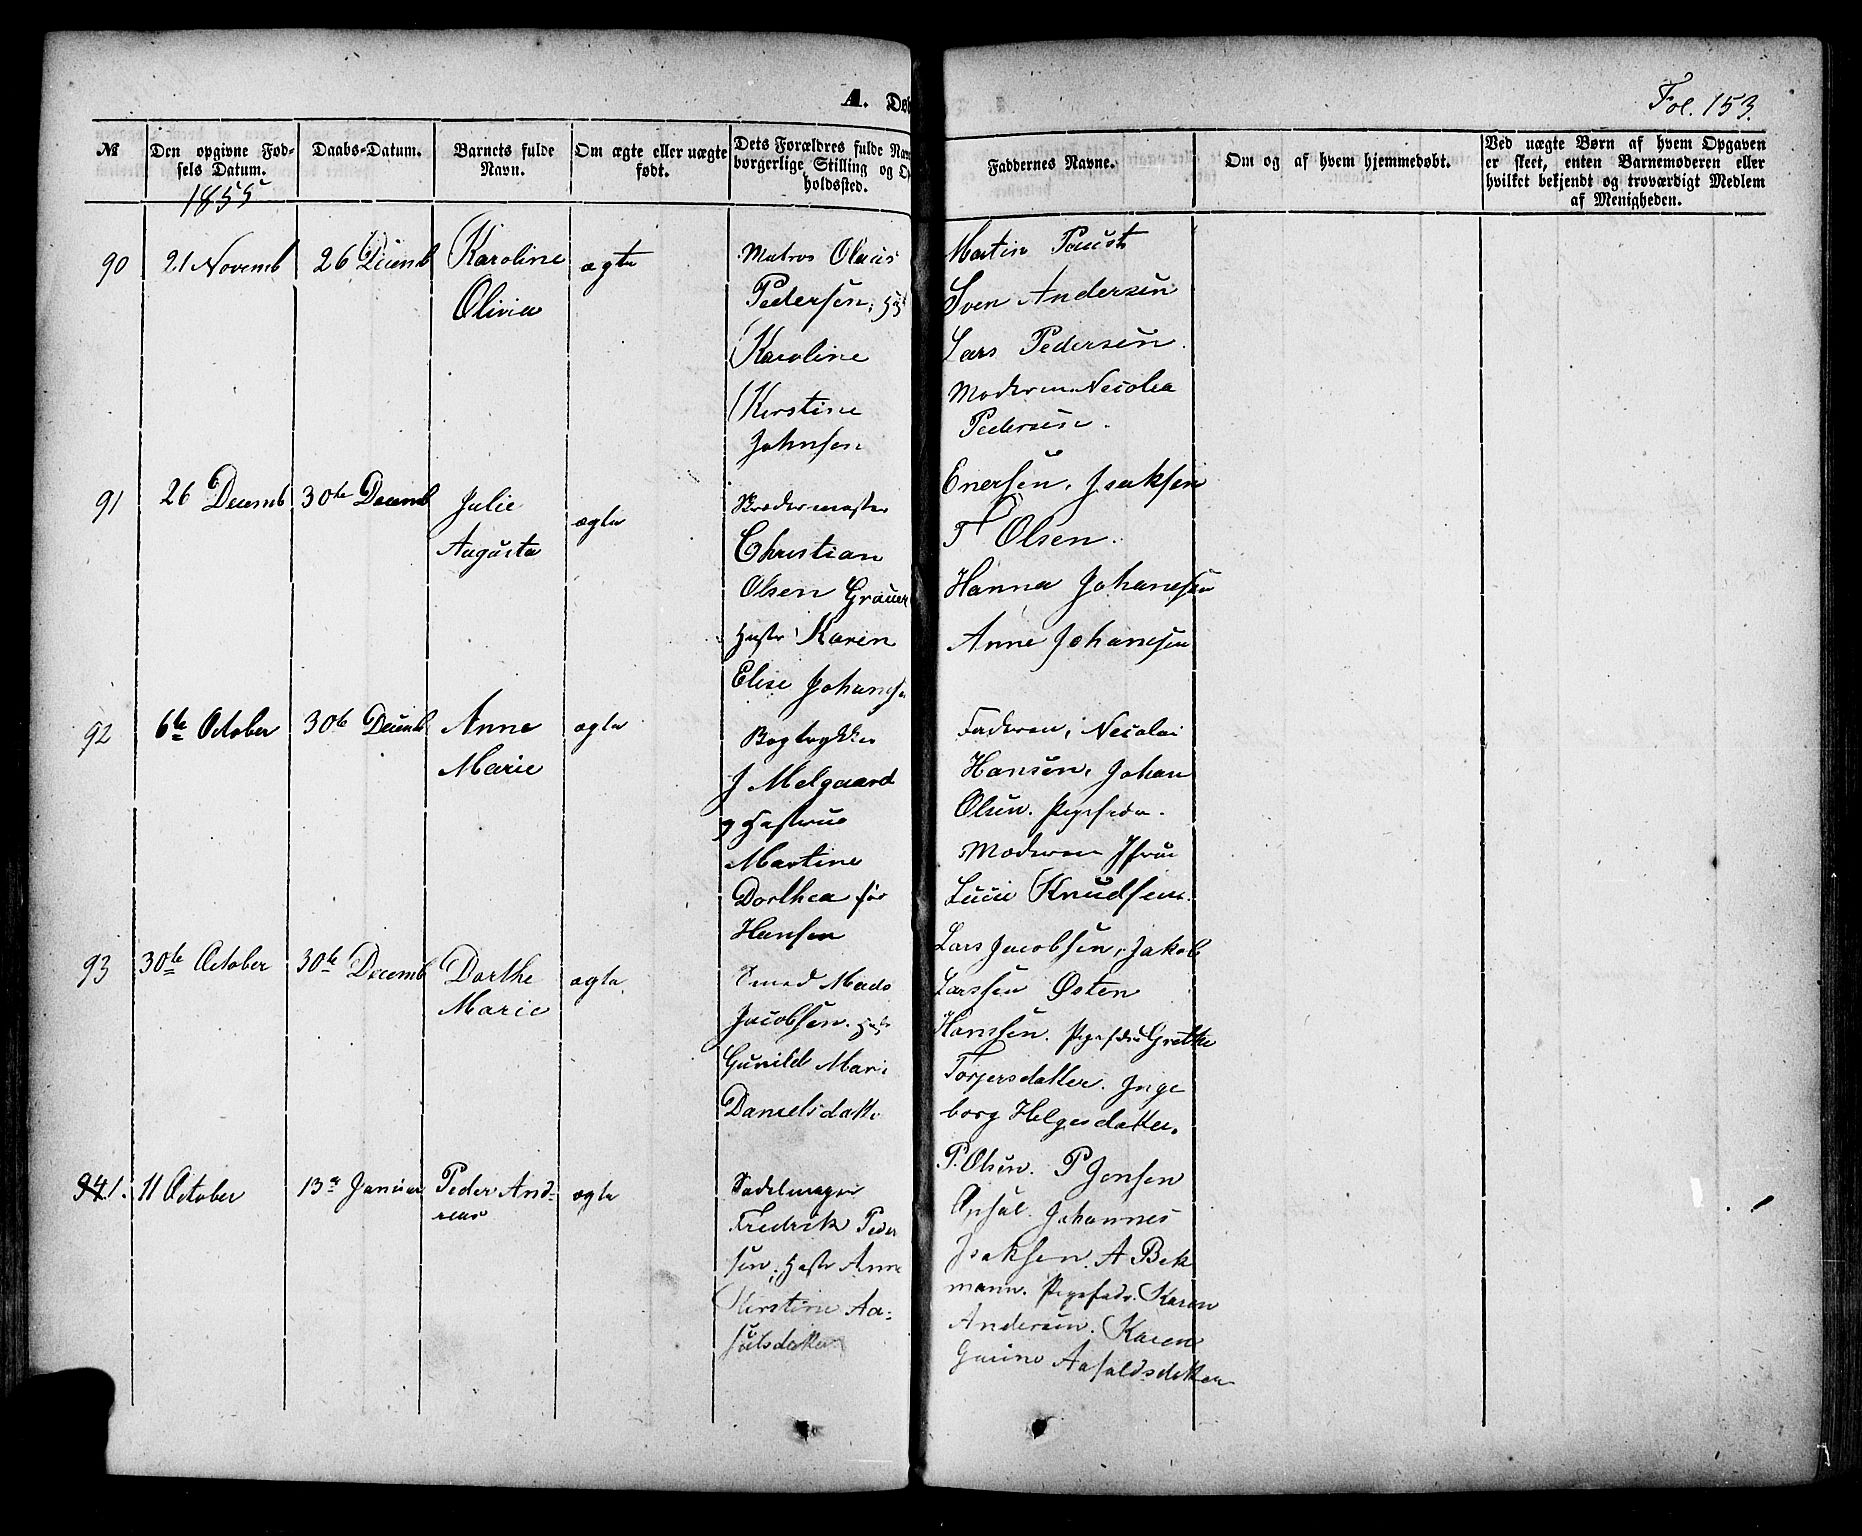 A. Døb
Fol. 153.
№
Den opgivne Fød-
sels Datum.
1855
Daabs-Datum.
Barnets fulde
Navn.
Om ægte eller uægte
født.
Dets Forældres fulde Nav
borgerlige Stilling og Op
holdssted.
Faddernes Navne.
Om og af hvem hjemmedøbt.
Ved uægte Børn af hvem Opgaven
er skeet, enten Barnemoderen eller
hvilket bekjendt og troværdigt Medlem
af Menigheden.
90
21 Novemb
26 Decemb
Karoline
Olivia
ægte
Matros Olaus
Pedersen,
Karoline
Kirstine
Johnsen
Martin Faust
Sven Andersen
Lars Pedersen.
Moderen Nicolea
Pedersen.
91
26 Decemb
30te Decemb
Julie
Augusta
ægte
Christian
Olsen Grauer
Hustr Karen
Elise Johanse
Enersen, Isaksen
T Olsen.
Hanna Johansen
Anne Johansen
92
6te October
30te Decemb
Anne
Marie
ægte
Bogtrykker
J Melgaard
og Hustrue
Martine
Dorthea før
Hansen
Faderen, Nicolai
Hansen, Johan
Olsen. Pigefadr.
Moderen Jfrue
Lucie Knudsen.
93
30te October
30te Decemb
Dorthe
Marie
ægte.
Smed Mads
Jacobsen. Hust
Gunild Mari
Danielsdatte
Lars Jacobsen, Jakob
Larssen Østen
Hanssen. Pigefdr Grethe
Torjersdatter. Inge
borg Helgesdatter.
94 1.
11 October
13de Januar
Peder And-
reas
ægte
Sadelmager
Fredrik Peder
sen, Hustr Anne
Kirstine Aa-
sulsdatter
P. Olsen. P Jonsen
Opsal. Johannes
Isaksen. A Bek
mann. Pigefadr. Karen
Andersen. Karen
Gurine Aasaldsdatter